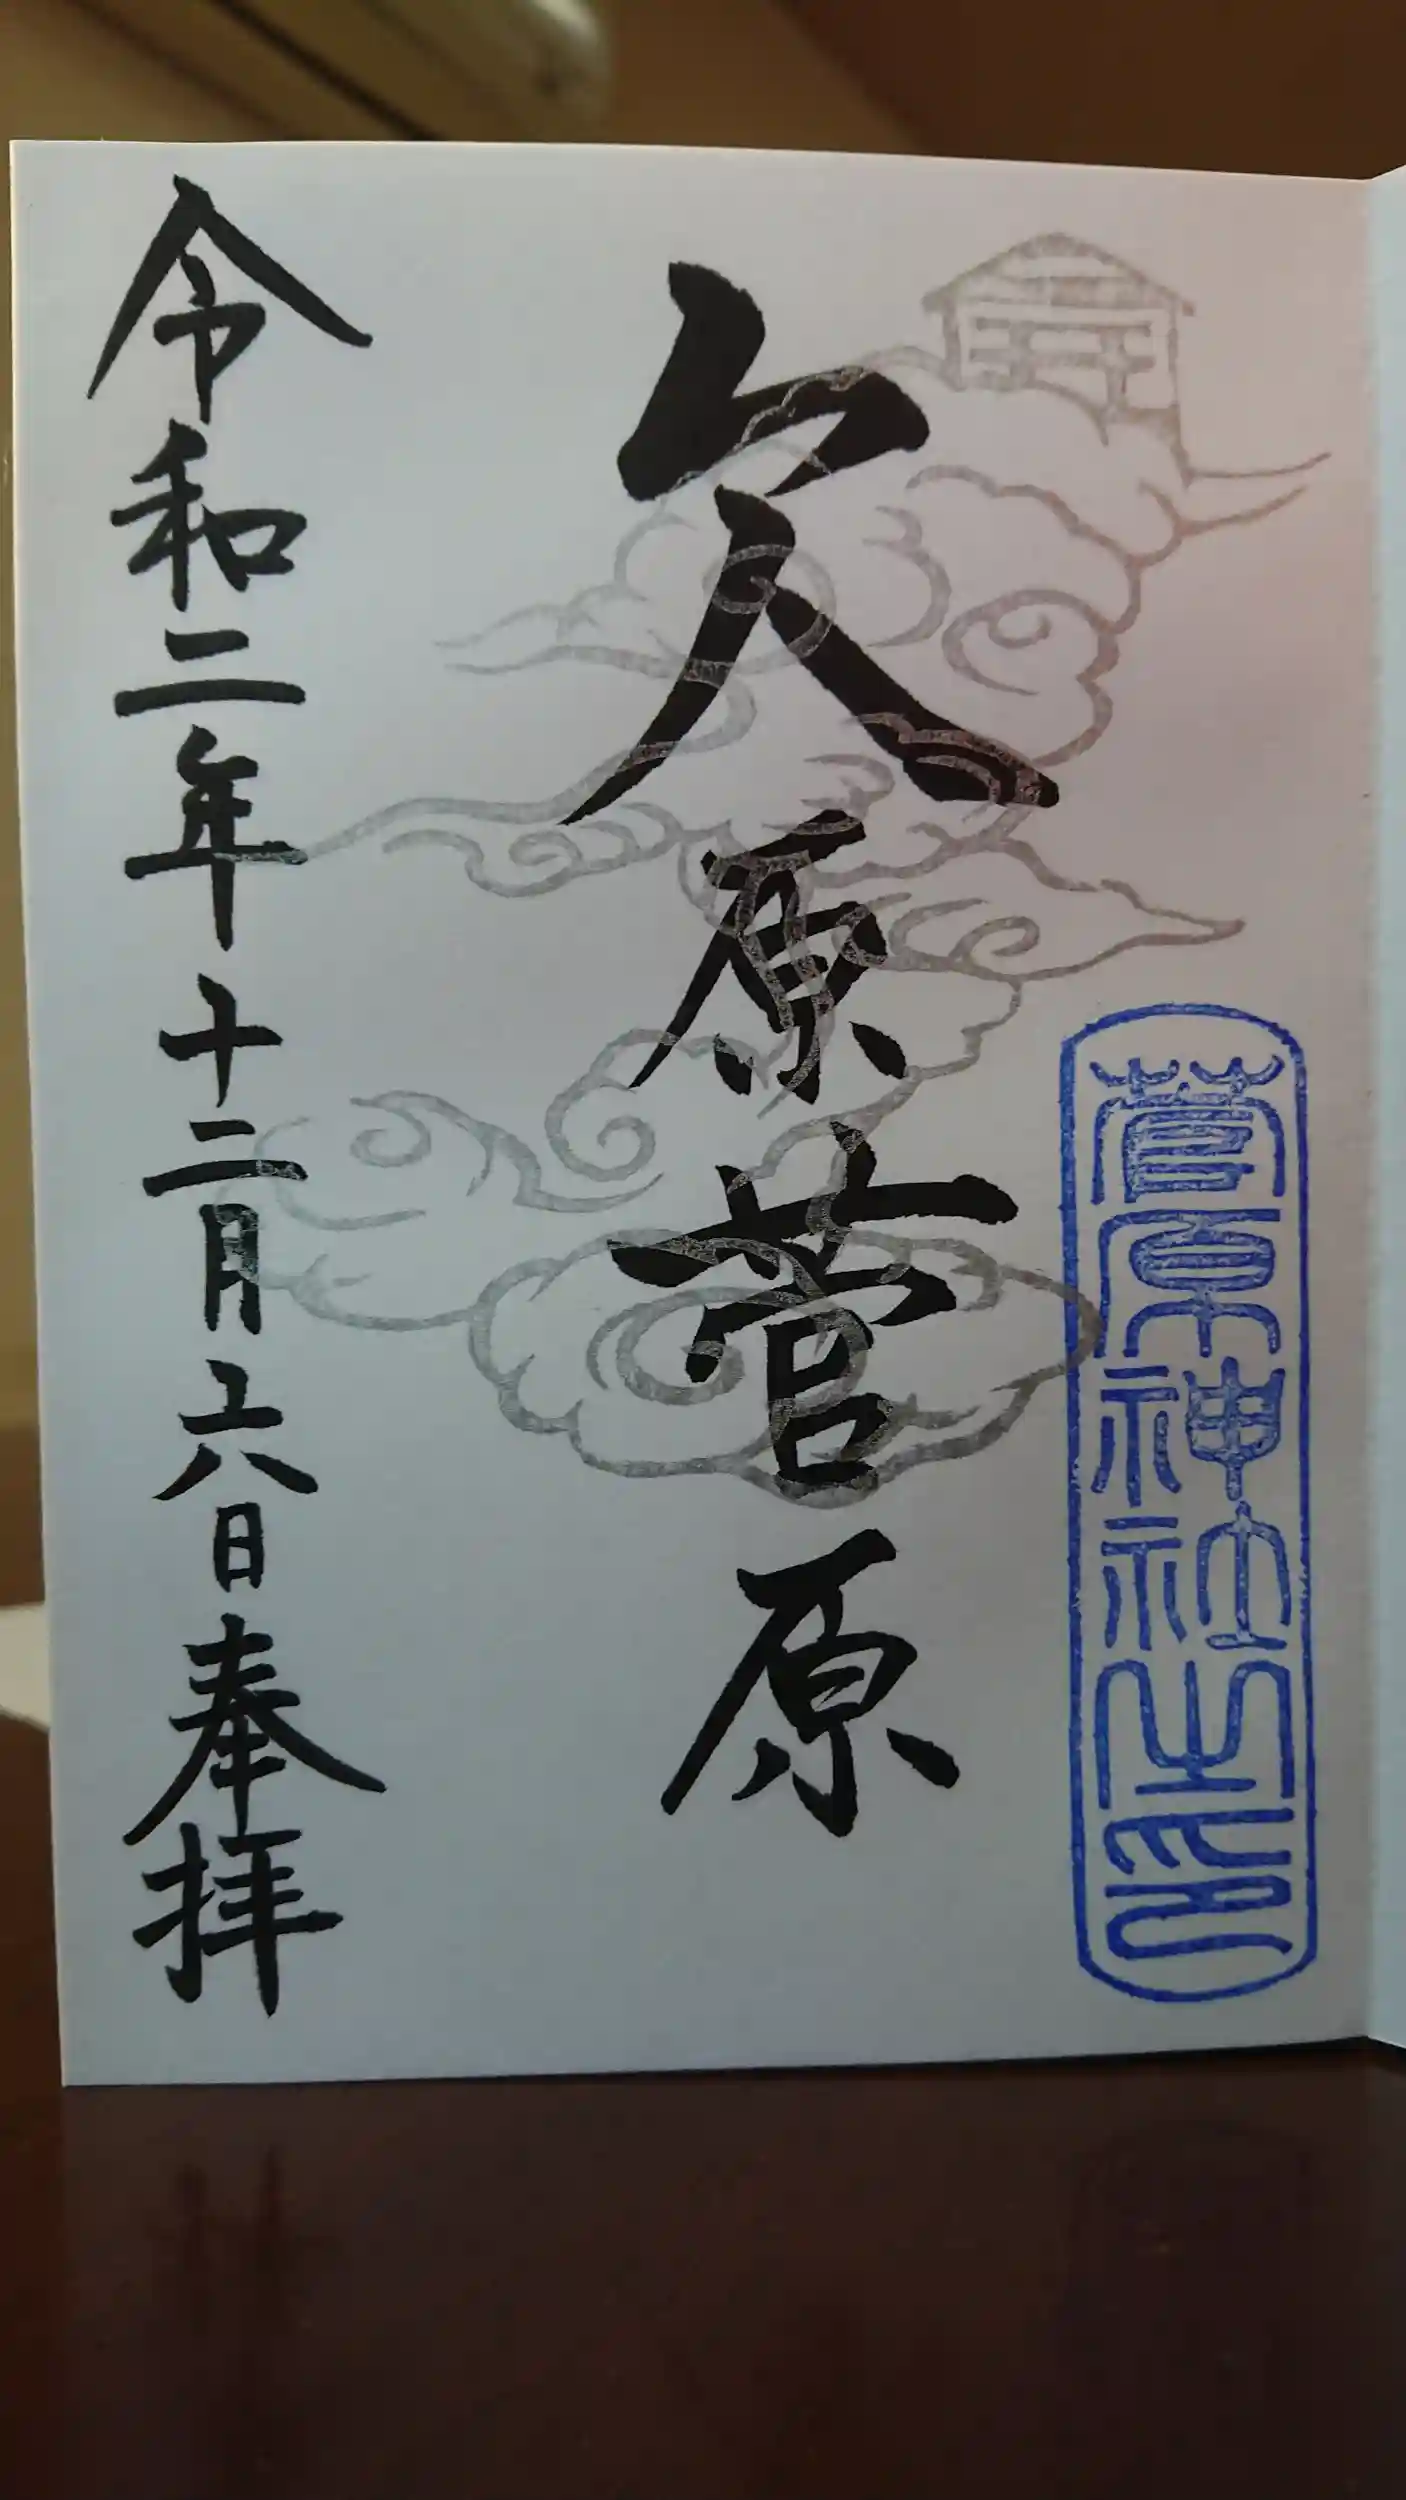 菅原神社之印
欠原菅原
令和二年十二月六日奉拝